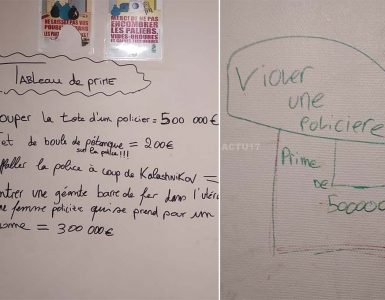 NE LAISSEZ PAS VOS
MERCI DE NE PAS
ENCOMBRER
LES PALIERS,
VIDES-ORDURES
Tableau de prime
ouper la tete d'un policier = 500 000€
et de boule de pétanque = 200€
sur la police!!!
la police à coup de Kalashnikov =
ntrer une géante barre de fer dans l'utér
ne femme policière qui se prend pour un
ome = 300 000€
Violer
une
policiere
ACTU17
Prime
DE
500000